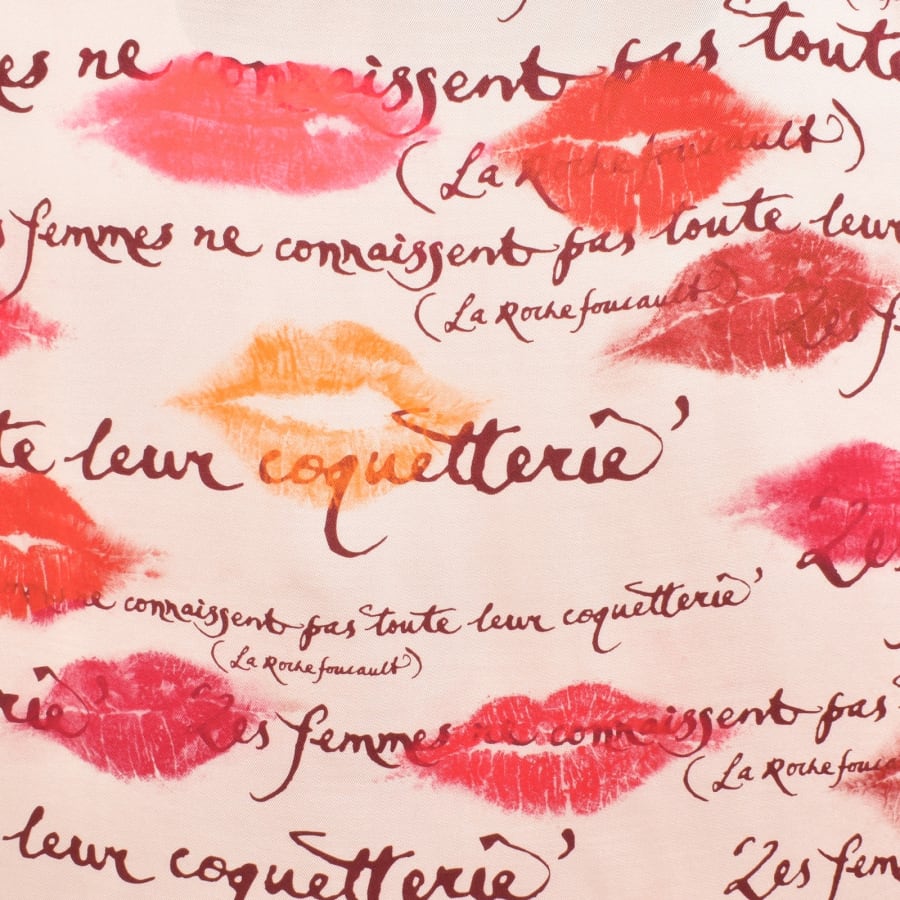 es ne connaissent pas toute
(La Rochefoucault)
s femmes ne connaissent pas toute leur
(La Rochefoucault)
Les f
te leur coquetterie'
Le
ne connaissent pas toute leur coquetterie'
(La Rochefoucault)
rie' Les femmes ne connaissent pas
(La Rochefouca
leur coquetterie'
Les fem